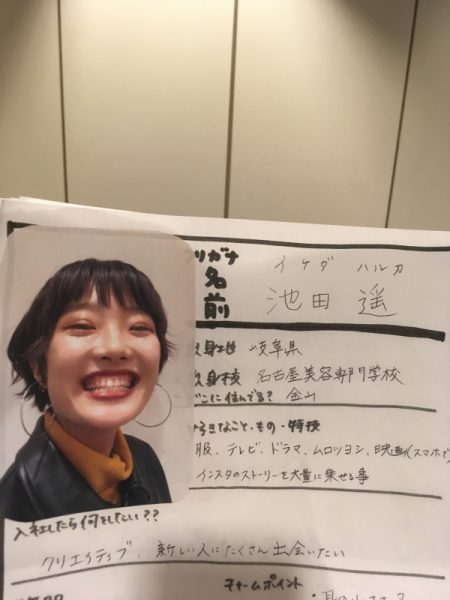 リガナ イケダ ハルカ
名前 池田 遥
身地 岐阜県
身校 名古屋美容専門学校
どこに住んでる? 金山
好きなこと、もの・特技
服、テレビ、ドラマ、ムロツヨシ、映画(スマホで
インスタのストーリーを大量に乗せる事
入社したら何をしたい??
クリエイティブ、新しい人にたくさん出会いたい
チャームポイント